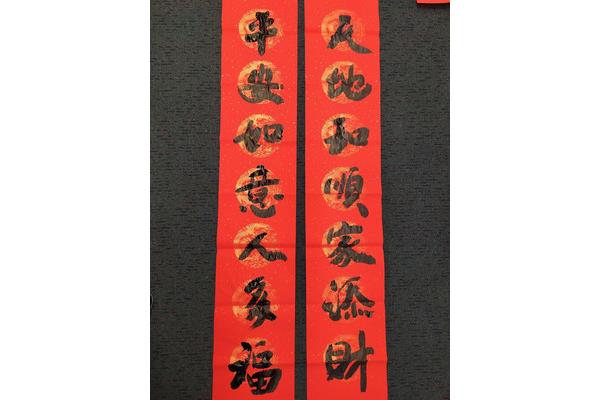 天地和順家添財
平安如意人多福